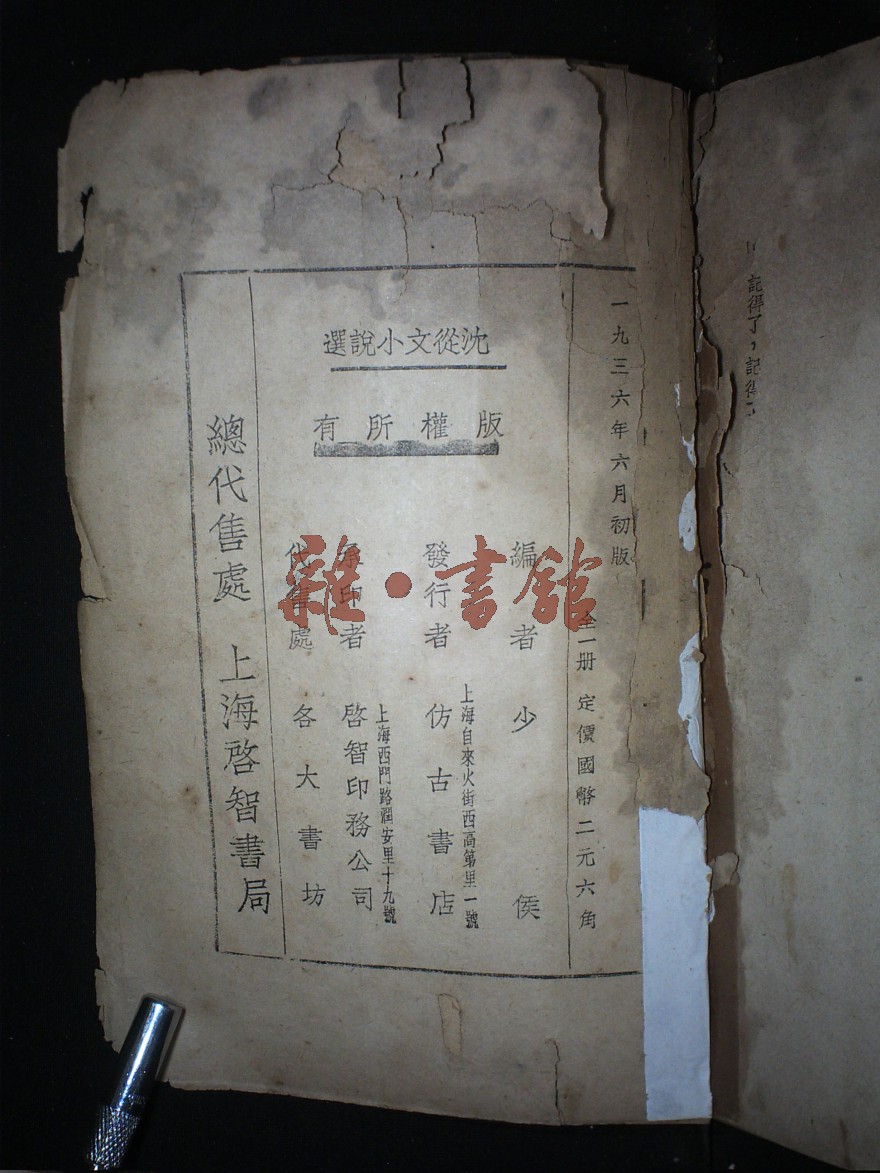 一九三六年六月初版　全一册　定價國幣二元六角
沈從文小說選
版權所有
編者　少侯
發行者　仿古書店
上海自來火街西高第里一號
承印者　啓智印務公司
上海西門路潤安里十九號
代售處　各大書坊
總代售處　上海啓智書局
雜·書館
記得了，記得